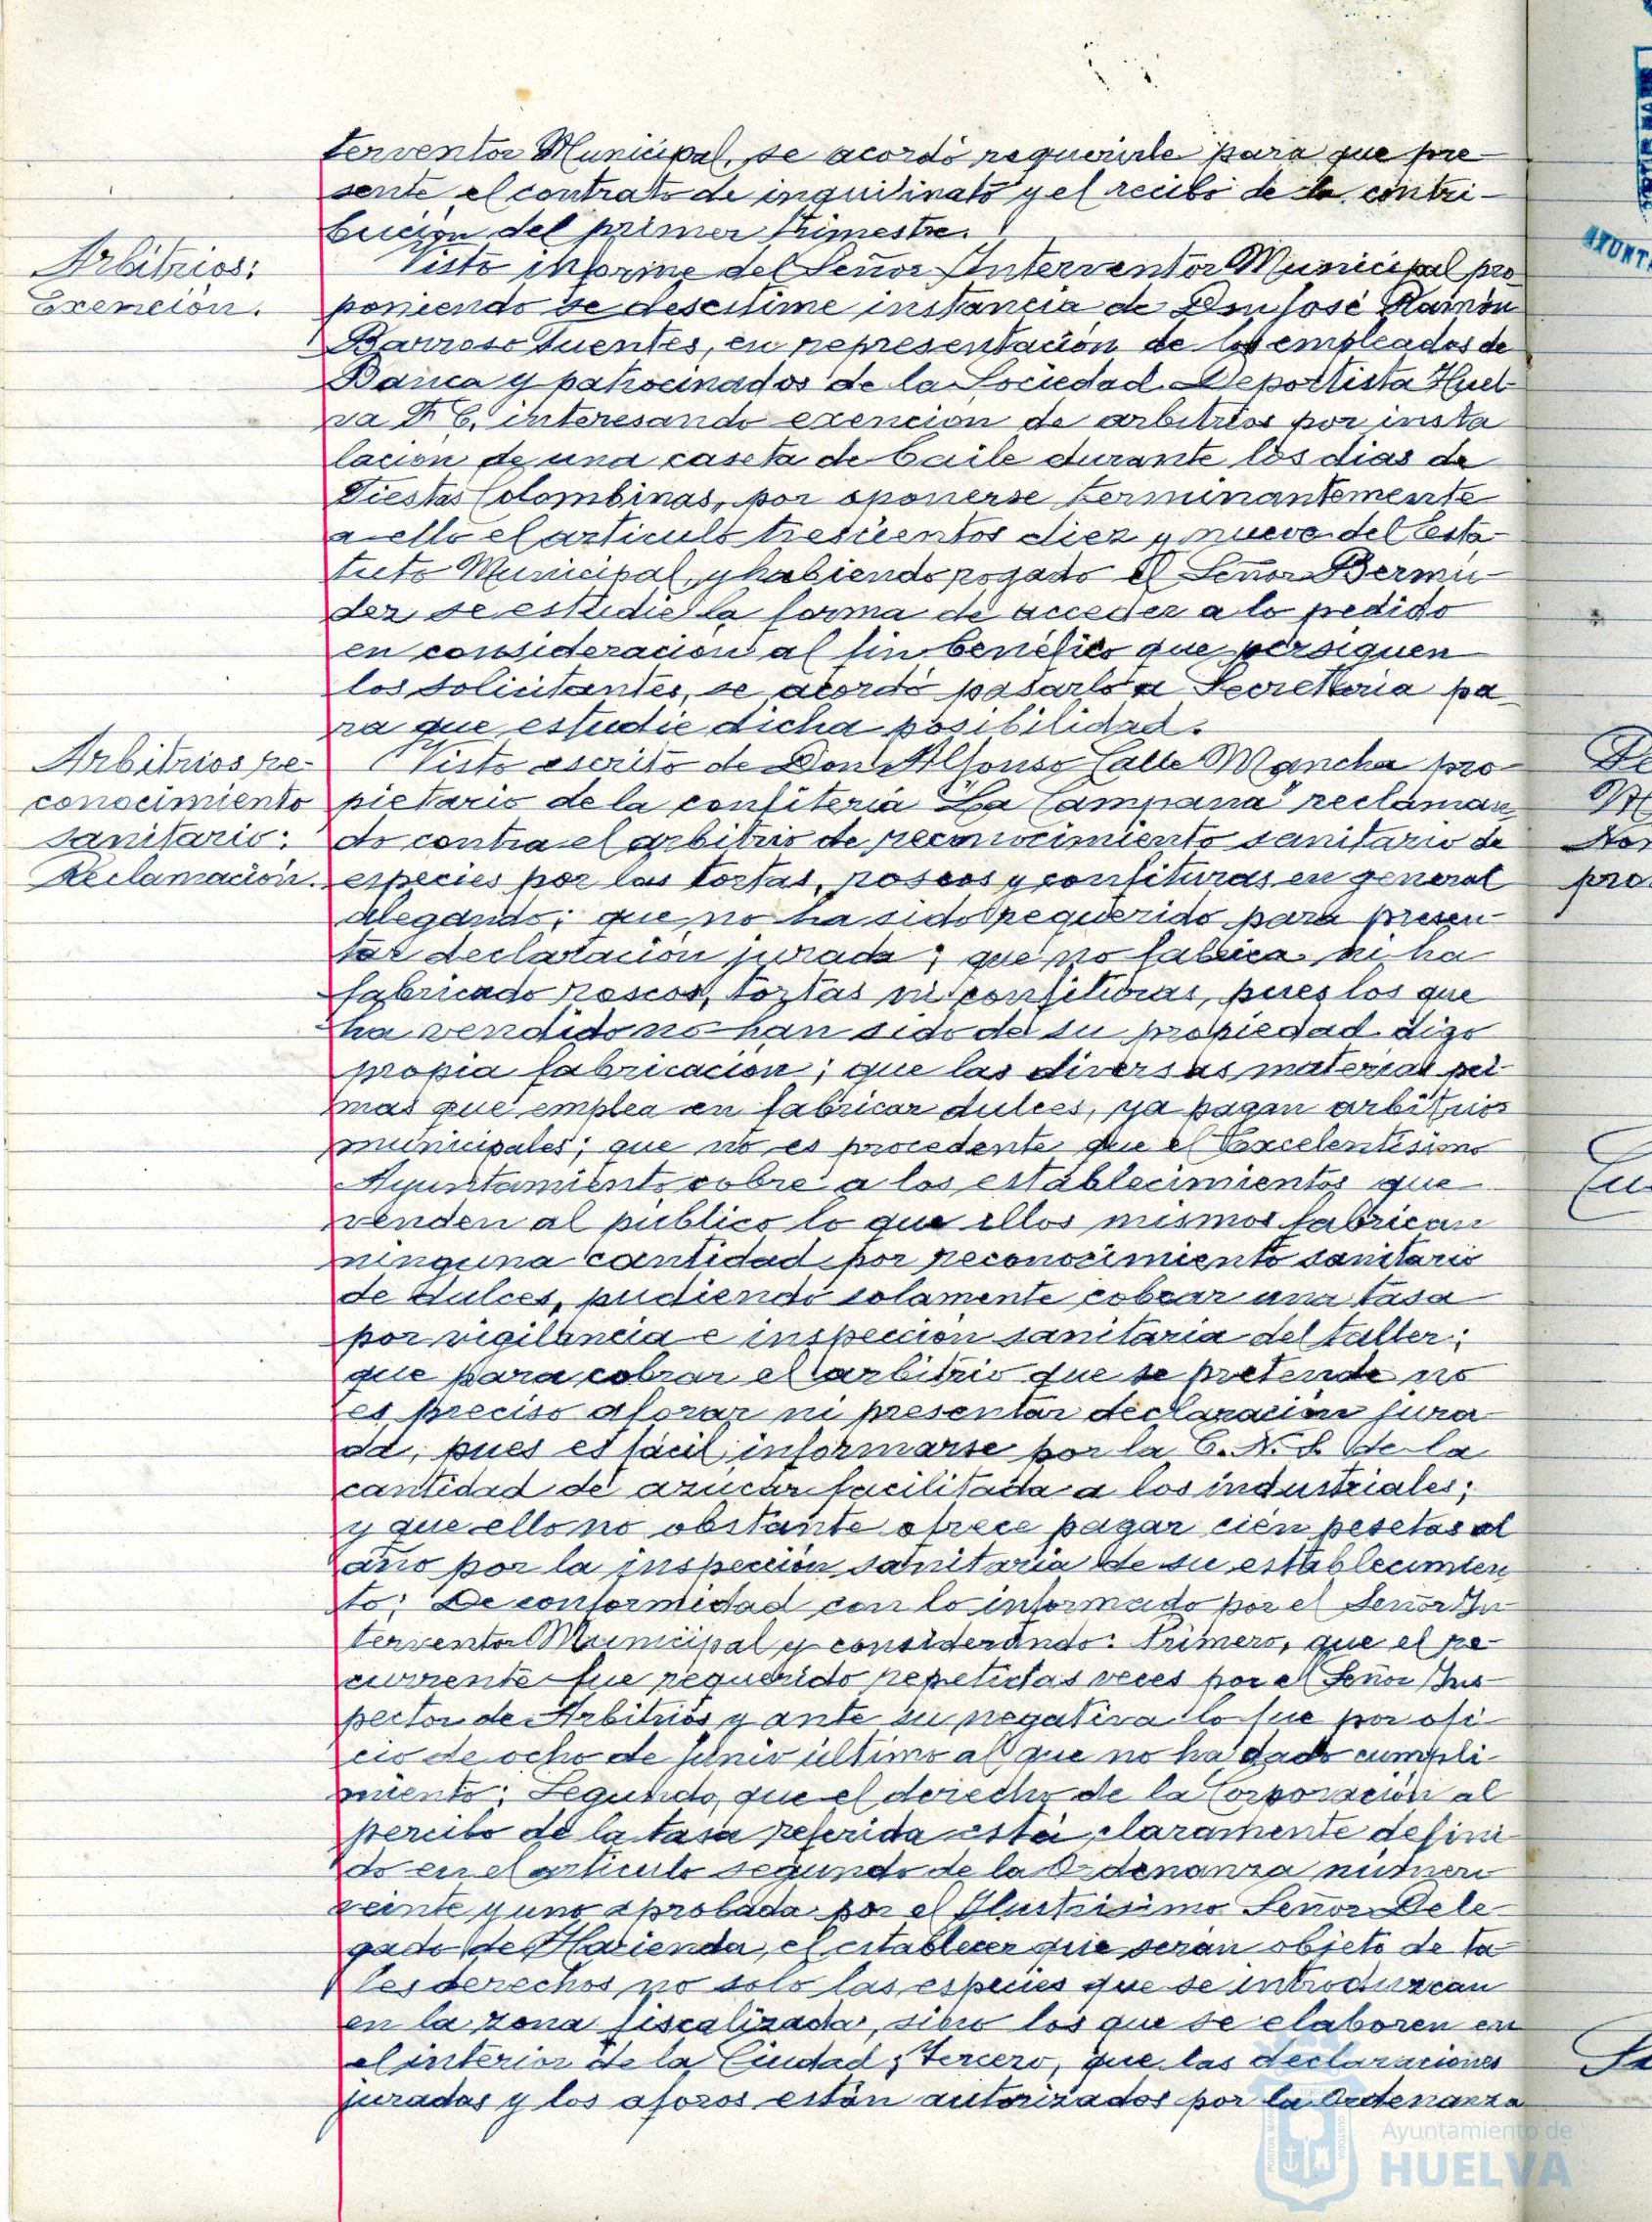 terventor Municipal, se acordó requerirle para que pre-
sente el contrato de inquilinato y el recibo de la contri-
bución del primer trimestre.
Arbitrios:
Exención.
Visto informe del Señor Interventor Municipal pro
poniendo se desestime instancia de Don José Ramón
Barroso Fuentes, en representación de los empleados de
Banca y patrocinados de la Sociedad Deportista Huel-
va F.C. interesando exencion de arbitrios por insta
lación de una caseta de baile durante los dias de
Fiestas Colombinas, por oponerse terminantemente
a ello el articulo trescientos diez y nueve del Esta-
tuto Municipal, y habiendo rogado el Señor Bermu-
dez se estudie la forma de acceder a lo pedido
en consideración al fin benéfico que persiguen
los solicitantes, se acordó pasarlo a Secretaria pa-
ra que estudie dicha posibilidad.
Arbitrios re-
conocimiento
sanitario:
Reclamación.
Visto escrito de Don Alfonso Calle Mancha pro-
pietario de la confiteria "La Campana" reclaman
do contra el arbitrio de reconocimiento sanitario de
especies por las tortas, roscos y confituras en general
alegando; que no ha sido requerido para presen-
tar declaración jurada; que no fabrica ni ha
fabricado roscos, tortas ni confituras, pues los que
ha vendido no han sido de su propiedad digo
propia fabricación; que las diversas materias pri-
mas que emplea en fabricar dulces, ya pagan arbitrios
municipales; que no es procedente que el Excelentísimo
Ayuntamiento cobre a los establecimientos que
venden al público lo que ellos mismos fabrican
ninguna cantidad por reconocimiento sanitario
de dulces, pudiendo solamente cobrar una tasa
por vigilancia e inspección sanitaria del taller;
que para cobrar el arbitrio que se pretende no
es preciso aforar ni presentar declaración jura
da, pues es fácil informarse por la C.N.S. de la
cantidad de azúcar facilitada a los industriales;
y que ello no obstante ofrece pagar cien pesetas al
año por la inspección sanitaria de su establecimien
to; De conformidad con lo informado por el Señor In
terventor Municipal y considerando: Primero, que el re-
currente fue requerido repetidas veces por el Señor Ins
pector de Arbitrios y ante su negativa lo fue por ofi
cio de ocho de Junio último al que no ha dado cumpli-
miento; Segundo, que el derecho de la Corporación al
percibo de la tasa referida está claramente defini-
do en el articulo segundo de la Ordenanza número
veinte y uno aprobada por el Ilustrisimo Señor Dele-
gado de Hacienda, el establecer que serán objeto de ta-
les derechos no solo las especies que se introduzcan
en la zona fiscalizada, sino los que se elaboren en
el interior de la Ciudad; Tercero, que las declaraciones
juradas y los aforos están autorizados por la Ordenanza
Ayuntamiento de
HUELVA